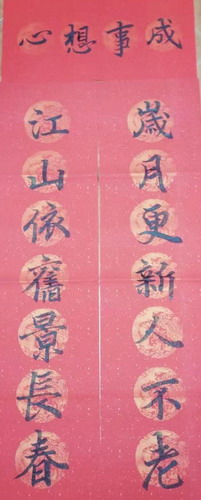 心想事成
歲月更新人不老
江山依舊景長春